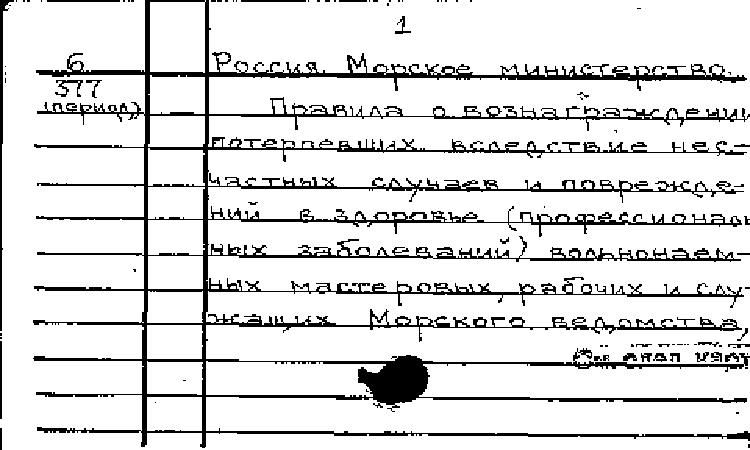 1
6 Россия. Морское министерство.
377
(период) Правила о вознаграждении
потерпевших вследствие нес-
частных случаев и поврежде-
ний в здоровье (профессиональ
ных заболеваний) вольнонаем-
ных мастеровых, рабочих и слу-
жащих Морского ведомства,
См. след карт